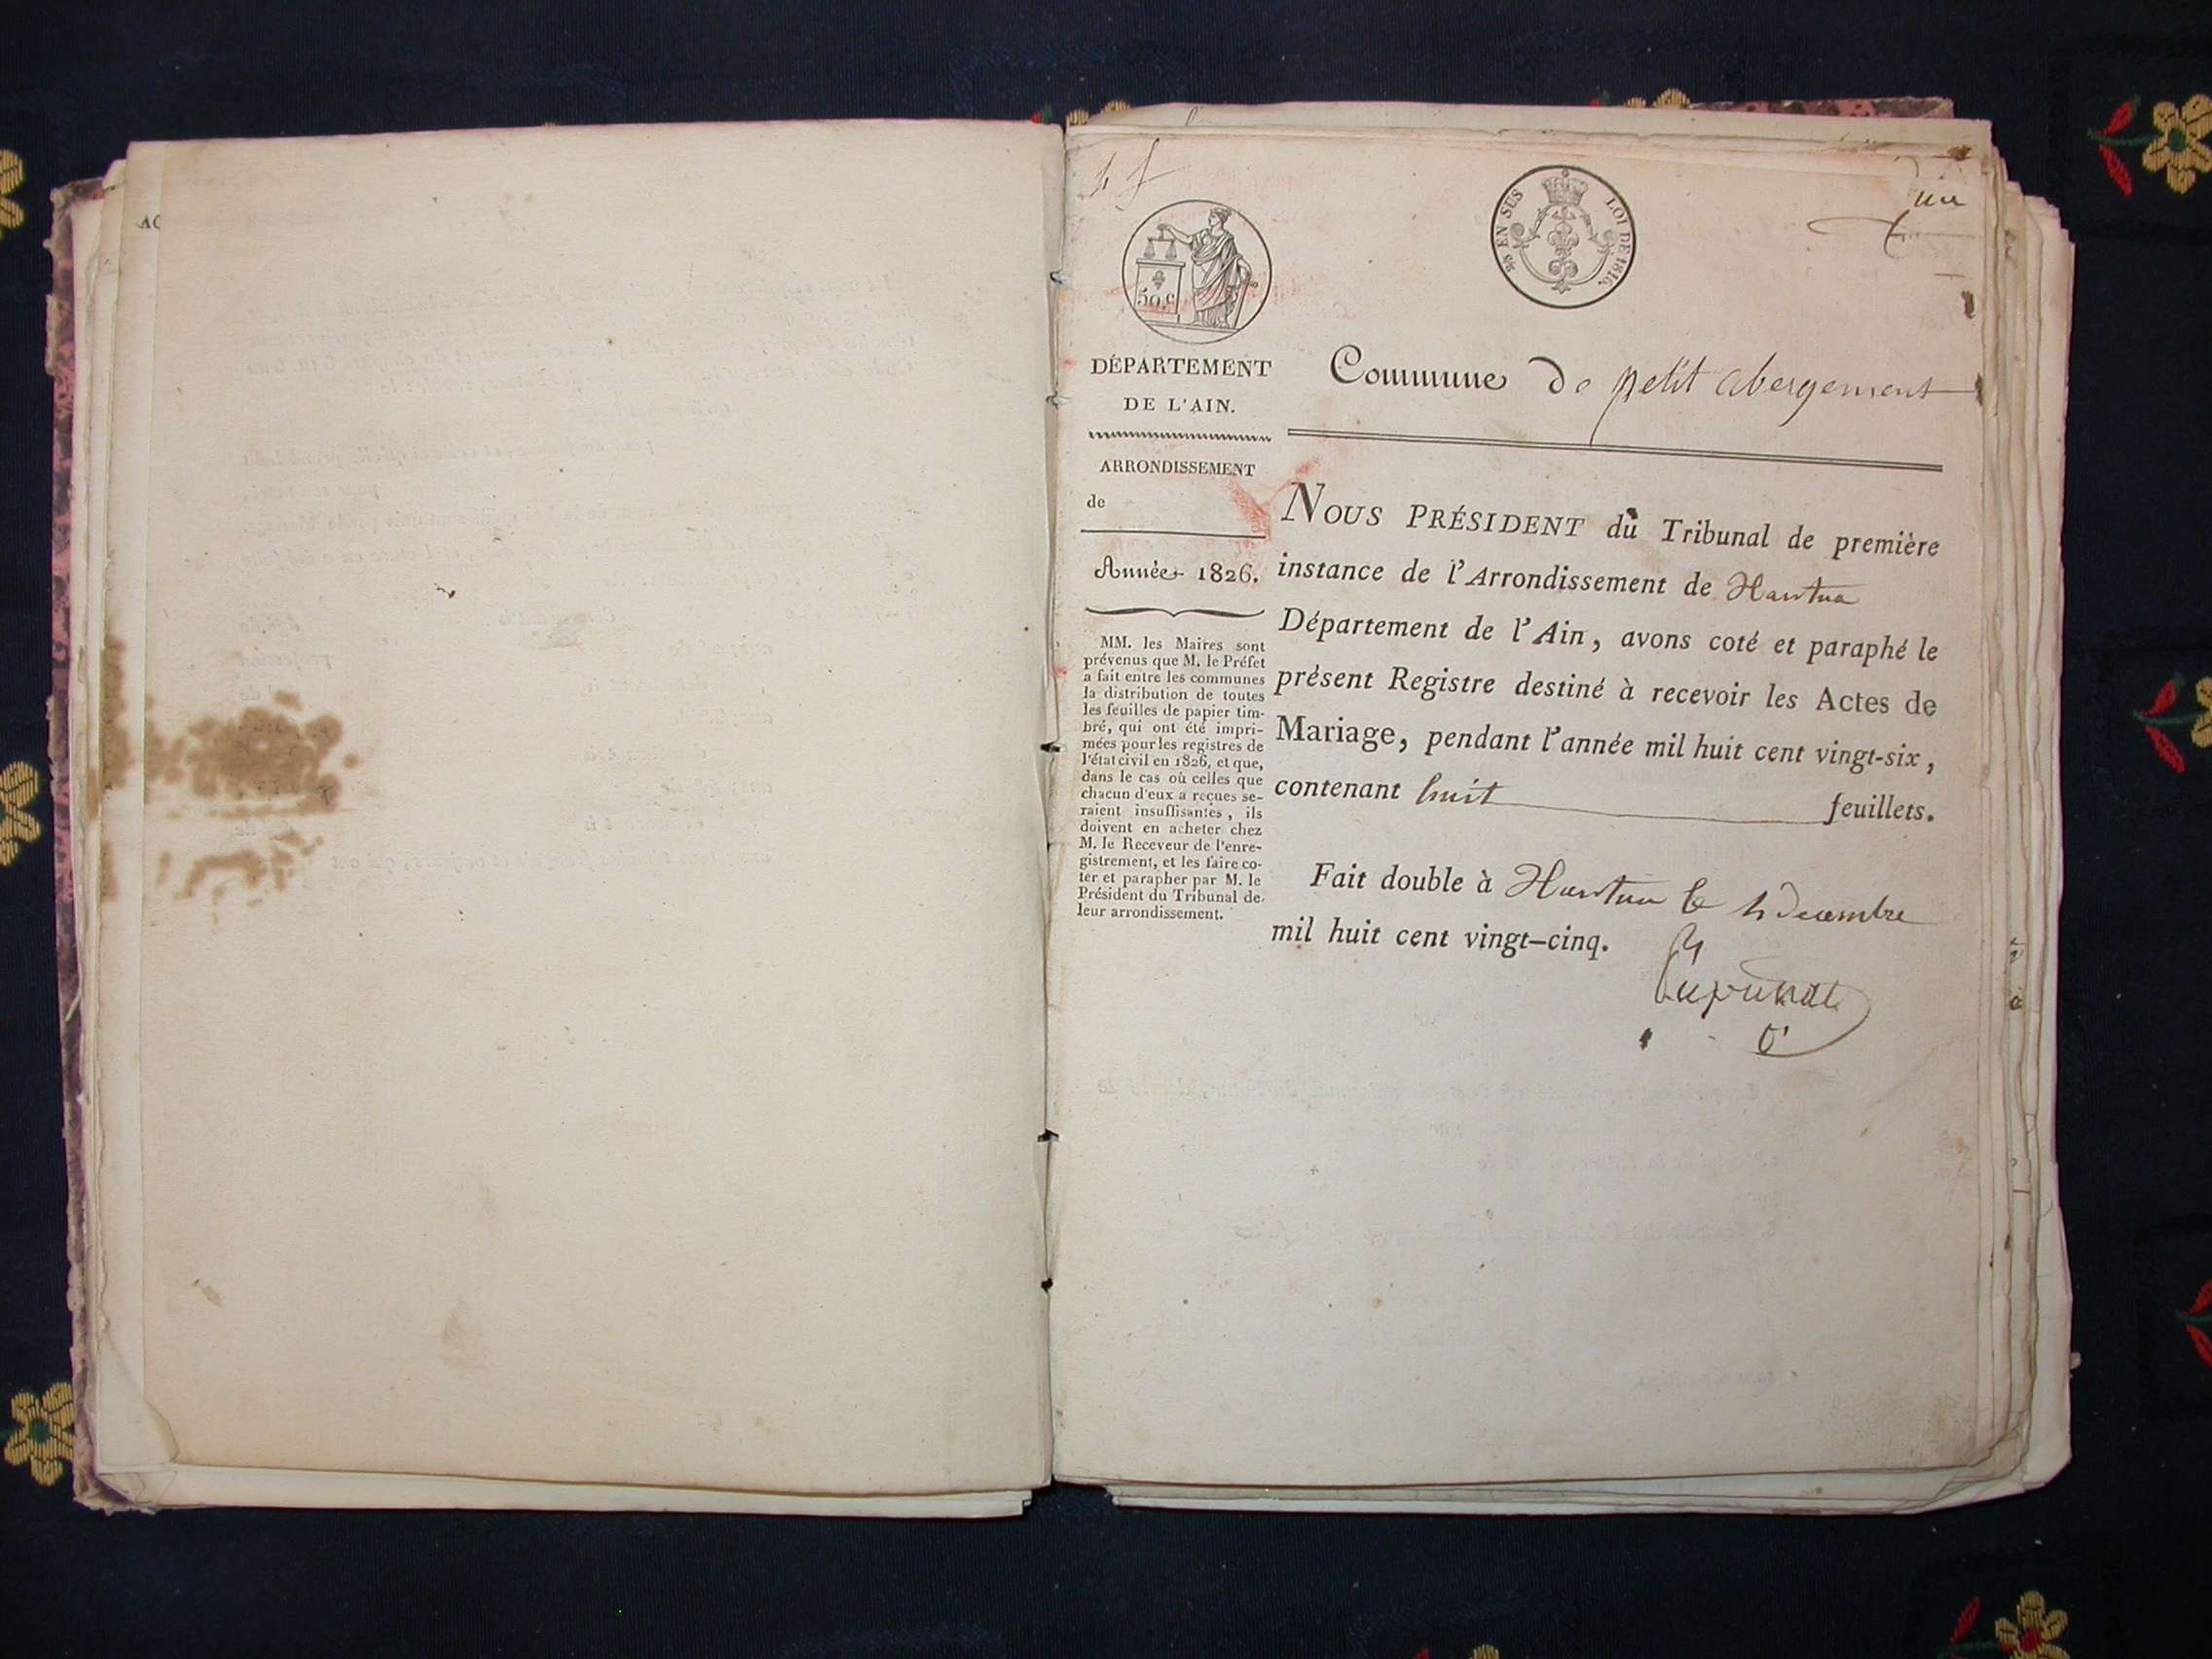 AC
50 c
¼ EN SUS
LOI DE 1816.
un
DÉPARTEMENT
DE L'AIN.
ARRONDISSEMENT
de
Année 1826.
MM. les Maires sont
prévenus que M. le Préfet
a fait entre les communes
la distribution de toutes
les feuilles de papier tim-
bré, qui ont été impri-
mées pour les registres de
l'état civil en 1826, et que,
dans le cas où celles que
chacun d'eux a reçues se-
raient insuffisantes, ils
doivent en acheter chez
M. le Receveur de l'enre-
gistrement, et les faire co-
ter et parapher par M. le
Président du Tribunal de
leur arrondissement.
Commune de petit abergement
NOUS PRÉSIDENT du Tribunal de première
instance de l'Arrondissement de Nantua
Département de l'Ain, avons coté et paraphé le
présent Registre destiné à recevoir les Actes de
Mariage, pendant l'année mil huit cent vingt-six,
contenant huit feuillets.
Fait double à Nantua le 4 decembre
mil huit cent vingt-cinq.